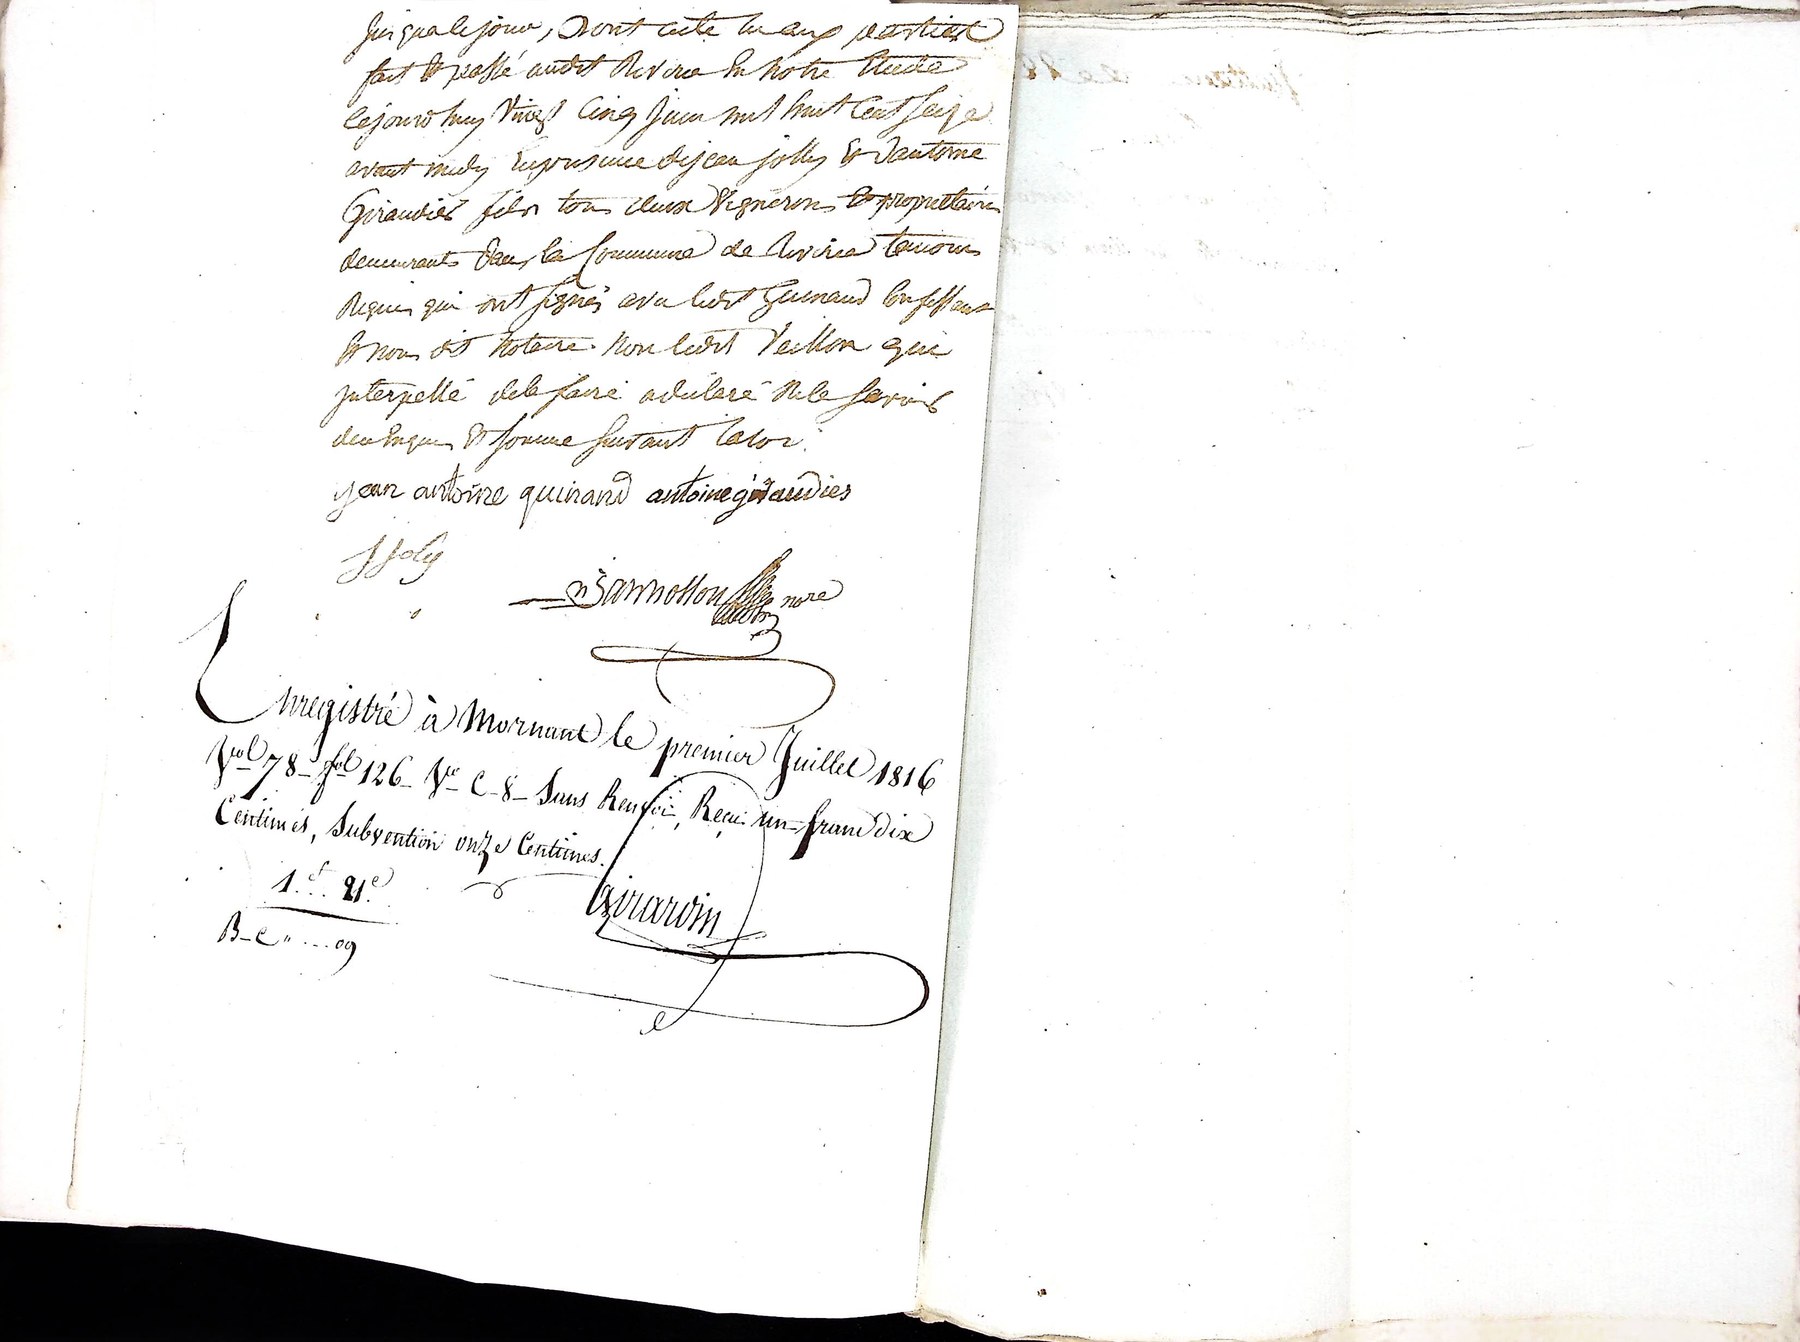 jusqua le jour, Dont acte lu aux parties
fait et passé audit Riverie En notre Etude
Cejourdhuy Vingt Cinq Juin mil huit Cent Seize
avant midy En presence de jean jolly Et Dantoine
Giraudier fils tous deux Vignerons Et proprietaires
demeurants Dans la Commune de Riverie temoins
Requis qui ont signés avec ledit Guinand Confessant
Et nous dit notaire non ledit Veillon qui
interpellé de le faire a déclaré Ne le Savoir
de ce Enquis Et Sommé Suivant la loi.
jean antoine guinand antoine giraudier
J Joly
nore
Enregistré à Mornant le premier Juillet 1816
Vol 78 fol 126 Vo C 8 Sans Renvoi, Reçu un franc dix
Centimes, Subvention onze Centimes.
1.f 21.c
Girardin
B-C " .... 09